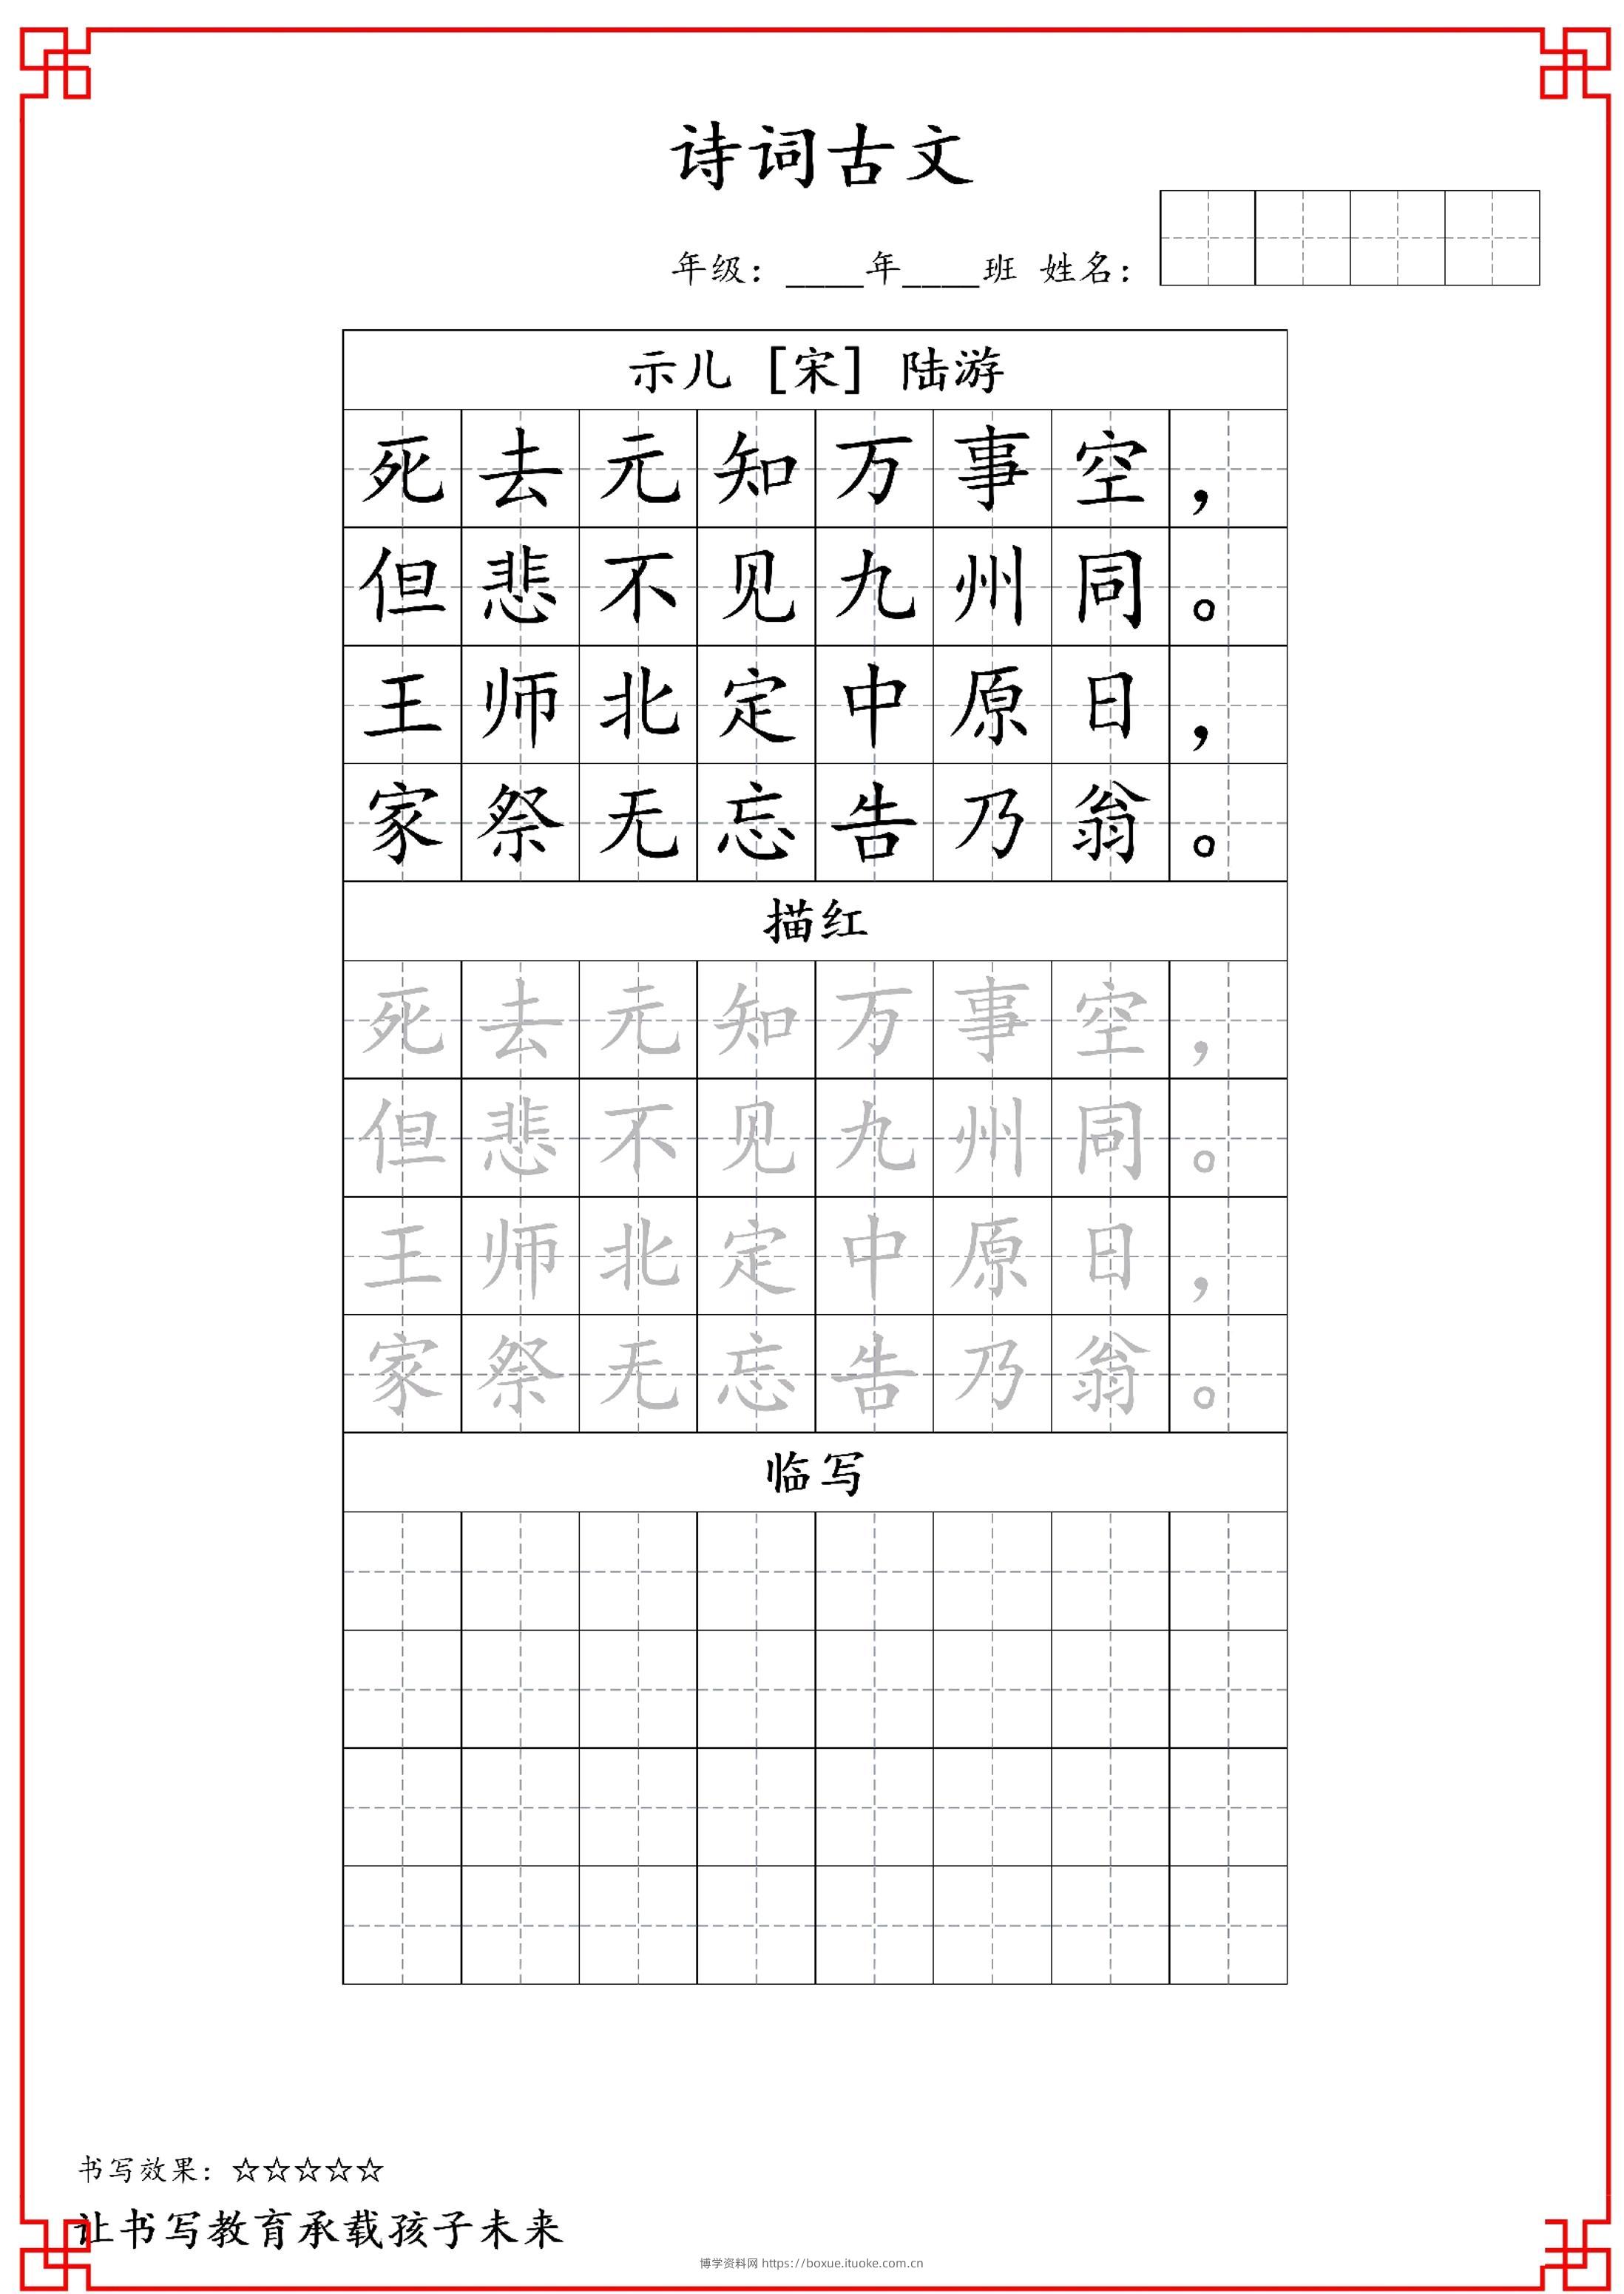 诗词古文
年级：____年____班 姓名：
示儿 [宋] 陆游
死去元知万事空，
但悲不见九州同。
王师北定中原日，
家祭无忘告乃翁。
描红
死去元知万事空，
但悲不见九州同。
王师北定中原日，
家祭无忘告乃翁。
临写
书写效果：☆☆☆☆☆
让书写教育承载孩子未来
博学资料网 https://boxue.ituoke.com.cn